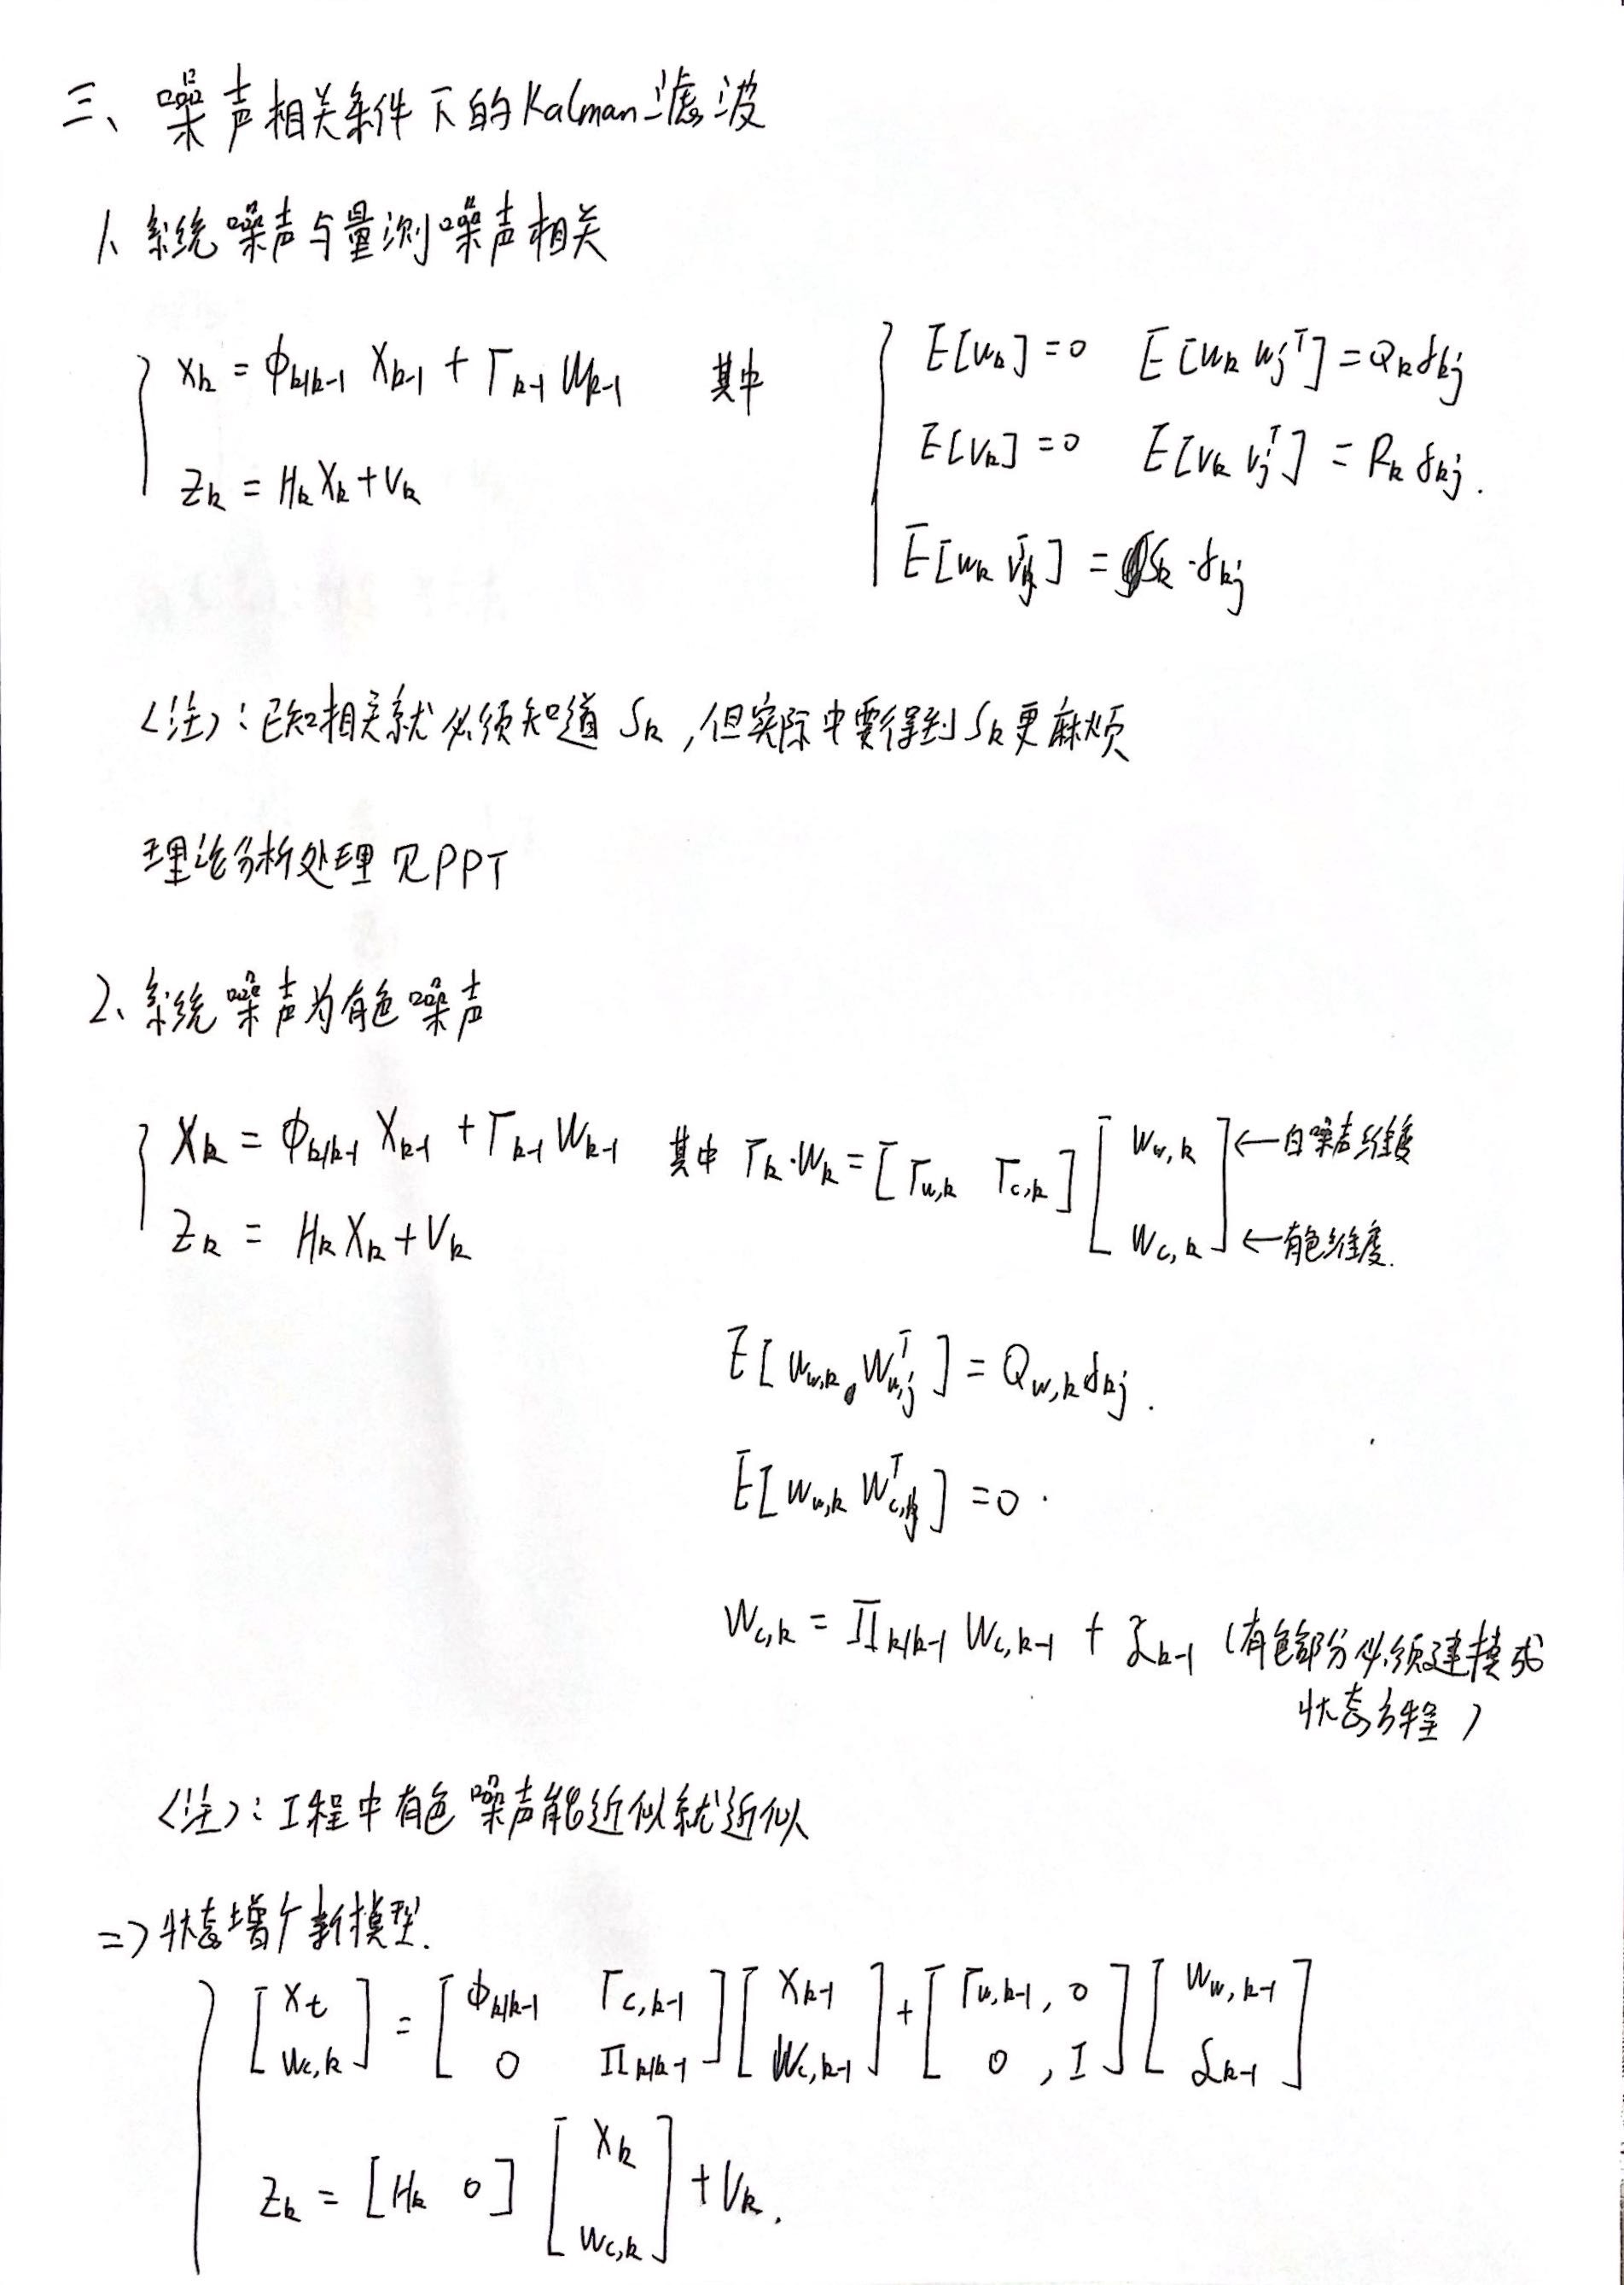 三、噪声相关条件下的Kalman滤波
1、系统噪声与量测噪声相关
{ X_k = Φ_{k/k-1} X_{k-1} + Γ_{k-1} W_{k-1} 其中 { E[W_k] = 0 E[W_k W_j^T] = Q_k δ_{kj}
E[V_k] = 0 E[V_k V_j^T] = R_k δ_{kj}.
Z_k = H_k X_k + V_k
E[W_k V_j^T] = S_k · δ_{kj}
〈注〉: 已知相关就必须知道 S_k ,但实际中要得到 S_k 更麻烦
理论分析处理见PPT
2、系统噪声为有色噪声
{ X_k = Φ_{k/k-1} X_{k-1} + Γ_{k-1} W_{k-1} 其中 Γ_k · W_k = [Γ_{w,k} Γ_{c,k}] [W_{w,k} ←白噪声维度
Z_k = H_k X_k + V_k W_{c,k}] ←有色维度.
E[W_{w,k} W_{w,j}^T] = Q_{w,k} δ_{kj}.
E[W_{w,k} W_{c,j}^T] = 0.
W_{c,k} = Π_{k/k-1} W_{c,k-1} + ξ_{k-1} (有色部分必须建模成
状态方程)
〈注〉: 工程中有色噪声能近似就近似
=> 状态增广新模型.
{ [X_t; W_{c,k}] = [Φ_{k/k-1} Γ_{c,k-1}; 0 Π_{k/k-1}] [X_{k-1}; W_{c,k-1}] + [Γ_{w,k-1}, 0; 0, I] [W_{w,k-1}; ξ_{k-1}]
Z_k = [H_k 0] [X_k; W_{c,k}] + V_k.